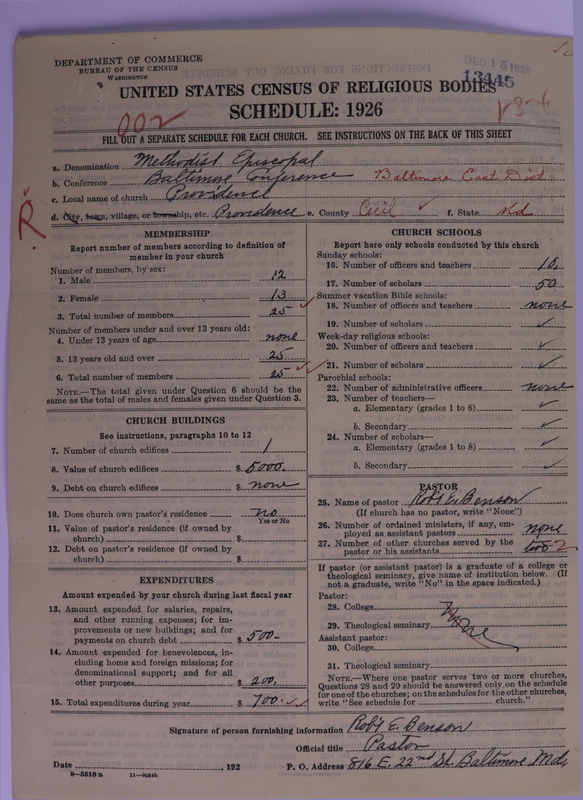 DEPARTMENT OF COMMERCE
BUREAU OF THE CENSUS
WASHINGTON
DEC 15 1926
13445
UNITED STATES CENSUS OF RELIGIOUS BODIES
SCHEDULE: 1926
002
FILL OUT A SEPARATE SCHEDULE FOR EACH CHURCH. SEE INSTRUCTIONS ON THE BACK OF THIS SHEET
a. Denomination Methodist Episcopal
b. Conference Baltimore Conference Baltimore East Dist
c. Local name of church Providence
d. City, town, village, or township, etc. Providence e. County Cecil f. State Md
R
MEMBERSHIP
Report number of members according to definition of member in your church
Number of members, by sex:
1. Male 12
2. Female 13
3. Total number of members 25
Number of members under and over 13 years old:
4. Under 13 years of age none
5. 13 years old and over 25
6. Total number of members 25
NOTE.—The total given under Question 6 should be the
same as the total of males and females given under Question 3.
CHURCH BUILDINGS
See instructions, paragraphs 10 to 12
7. Number of church edifices 1
8. Value of church edifices $ 5000.
9. Debt on church edifices $ none
10. Does church own pastor's residence no
Yes or No
11. Value of pastor's residence (if owned by
church) $
12. Debt on pastor's residence (if owned by
church) $
EXPENDITURES
Amount expended by your church during last fiscal year
13. Amount expended for salaries, repairs,
and other running expenses; for im-
provements or new buildings; and for
payments on church debt $ 500-
14. Amount expended for benevolences, in-
cluding home and foreign missions; for
denominational support; and for all
other purposes $ 200.
15. Total expenditures during year $ 700.
CHURCH SCHOOLS
Report here only schools conducted by this church
Sunday schools:
16. Number of officers and teachers 10.
17. Number of scholars 50
Summer vacation Bible schools:
18. Number of officers and teachers none
19. Number of scholars ✓
Week-day religious schools:
20. Number of officers and teachers ✓
21. Number of scholars ✓
Parochial schools:
22. Number of administrative officers none
23. Number of teachers—
a. Elementary (grades 1 to 8) ✓
b. Secondary ✓
24. Number of scholars—
a. Elementary (grades 1 to 8) ✓
b. Secondary ✓
PASTOR
25. Name of pastor Robt E. Benson
(If church has no pastor, write "None")
26. Number of ordained ministers, if any, em-
ployed as assistant pastors none
27. Number of other churches served by the
pastor or his assistants two 2
If pastor (or assistant pastor) is a graduate of a college or
theological seminary, give name of institution below. (If
not a graduate, write "No" in the space indicated.)
Pastor:
28. College
29. Theological seminary None
Assistant pastor:
30. College
31. Theological seminary
NOTE.—Where one pastor serves two or more churches,
Questions 28 and 29 should be answered only on the schedule
for one of the churches; on the schedules for the other churches,
write "See schedule for church."
Signature of person furnishing information Robt E. Benson
Official title Pastor
Date , 192 P. O. Address 816 E. 22nd St. Baltimore, Md.
8—5518a 11—9024b